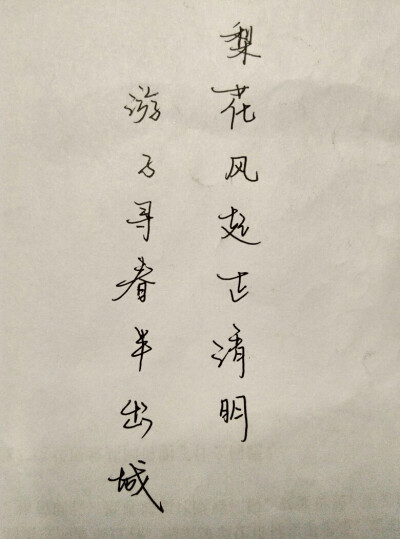 梨花风起正清明
游子寻春半出城